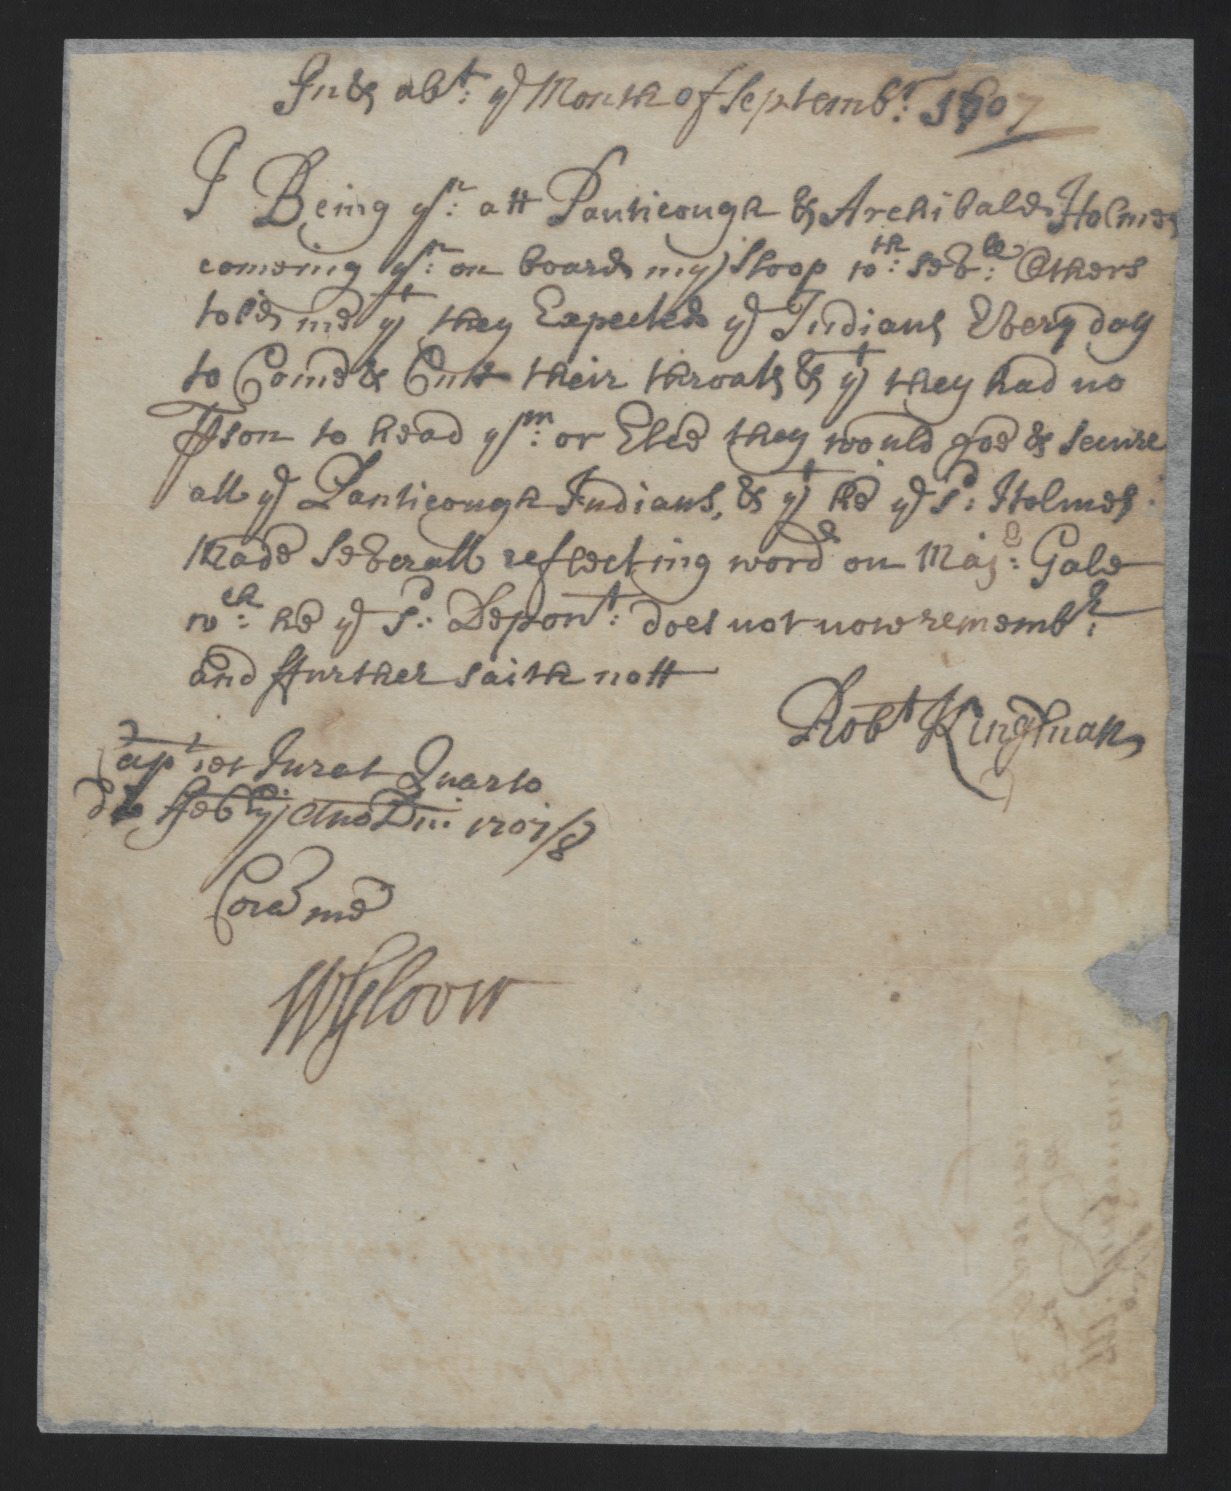 In & abt: ye Month of Septembr: 1707
I Being yn: att Panticough & Archibald Holmes
comeing yn: on board my Sloop wth: Sevle: Others
told me yt they Expected ye Indians Every day
to Come & Cutt their throats & yt they had no
Pson to head ym: or Else they would goe & secure
all ye Panticough Indians, & yt he ye Sd: Holmes
made Severall reflecting words on Majr: Gale
wch: he ye Sd: Depont: does not now remembr:
and ffurther saith nott
Robt Kingham
Capt: et Jurat Quarto
die Febry Ano Dni: 1707/8
Cora me
W Glover